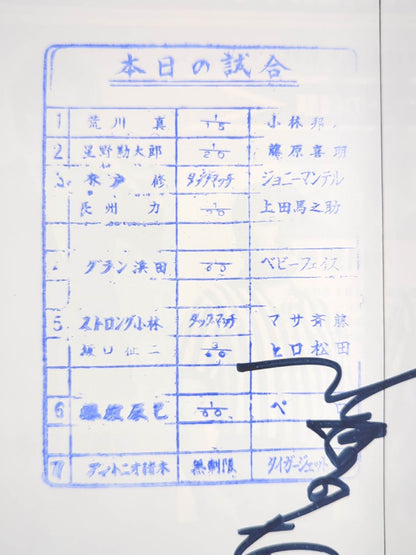 本日の試合
1 荒川 真 1/15 小林邦
2 星野勘太郎 1/20 藤原喜明
3 木戸 修 タッグマッチ ジョニーマンテル
長州 力 上田馬之助
グラン浜田 ベビーフェイス
5 ストロング小林 タッグマッチ マサ斉藤
坂口征二 3/60 ヒロ松田
6 辰巳 ペ
アントニオ猪木 無制限 タイガージェット